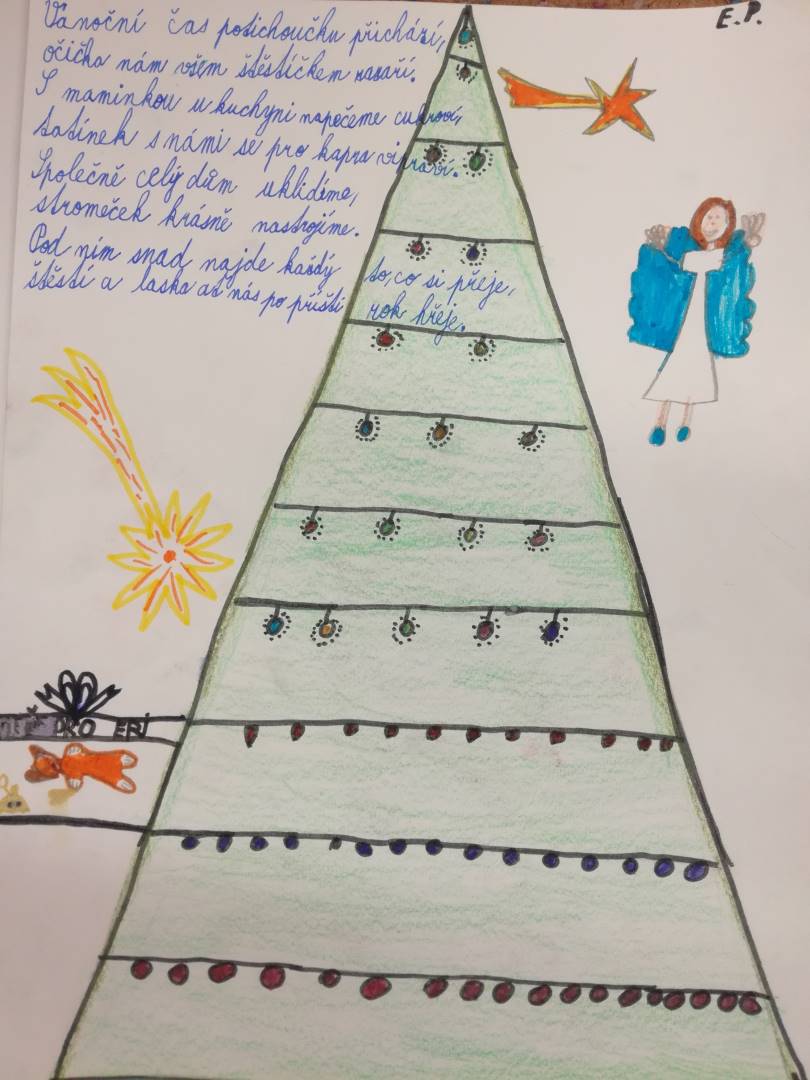 E.P.
Vánoční čas potichoučku přichází,
očička nám všem štěstíčkem rozzáří.
S maminkou v kuchyni napečeme cukroví,
tatínek s námi se pro kapra vipraví.
Společně celý dům uklidíme,
stromeček krásně nastrojíme.
Pod ním snad najde každý to, co si přeje,
štěstí a laska ať nás po příští rok hřeje.
PRO ERI